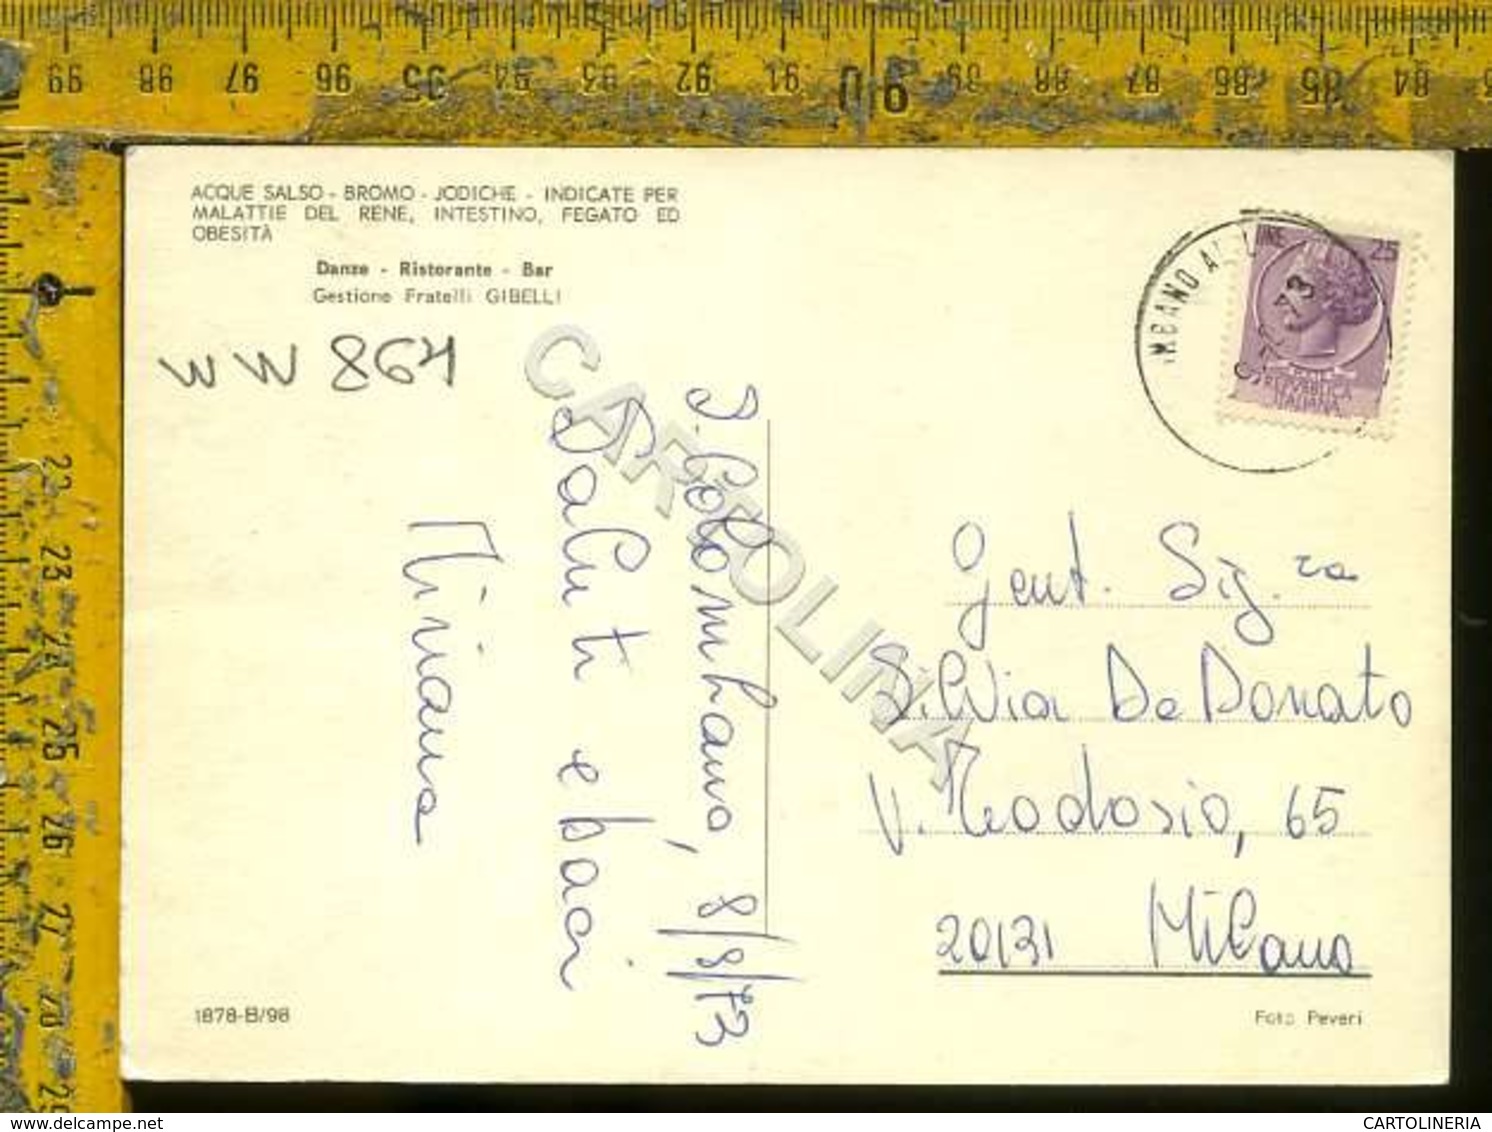 99 98 97 96 95 94 93 92 91 90 89 88 87 86 85 84
22
23
24
25
26
27
28
29
ACQUE SALSO - BROMO - JODICHE - INDICATE PER
MALATTIE DEL RENE, INTESTINO, FEGATO ED
OBESITÀ
Danze - Ristorante - Bar
Gestione Fratelli GIBELLI
WW 864
S. Colombano, 8/8/73
Saluti e baci
Miriana
MBANO AL
73
LIRE 25
REPVBBLICA
ITALIANA
Gent. Sig.ra
Silvia De Donato
V. Teodosio, 65
20131 Milano
1878-B/98
Foto Peveri
CARTOLINA
CARTOLINERIA